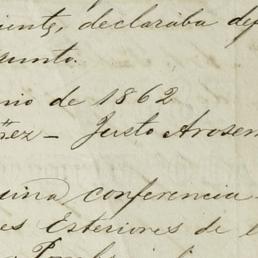 declaraba
punto.
nio de 1862
ñez – Justo Arosem
uina conferencia
es Exteriores de l